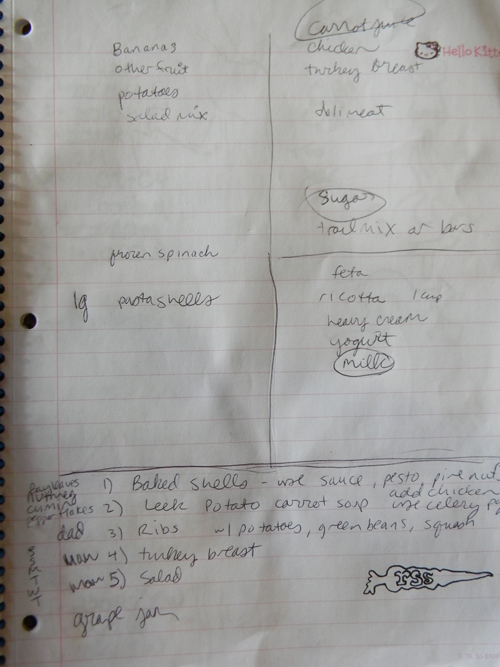 Bananas
other fruit
potatoes
salad mix
frozen spinach
lg pasta shells
carrot juice
chicken
Hello Kitty
turkey breast
deli meat
sugar
trail mix or bars
feta
ricotta 1 cup
heavy cream
yogurt
milk
bay leaves
nutmeg
cumin
pepper flakes
1) Baked shells - use sauce, pesto, pine nut
add chicken
2) Leek Potato carrot soup use celery
dad 3) Ribs ~1 potatoes, green beans, squash
mom 4) turkey breast
mom 5) Salad
S
S
M
T
W
T
grape jam
rss